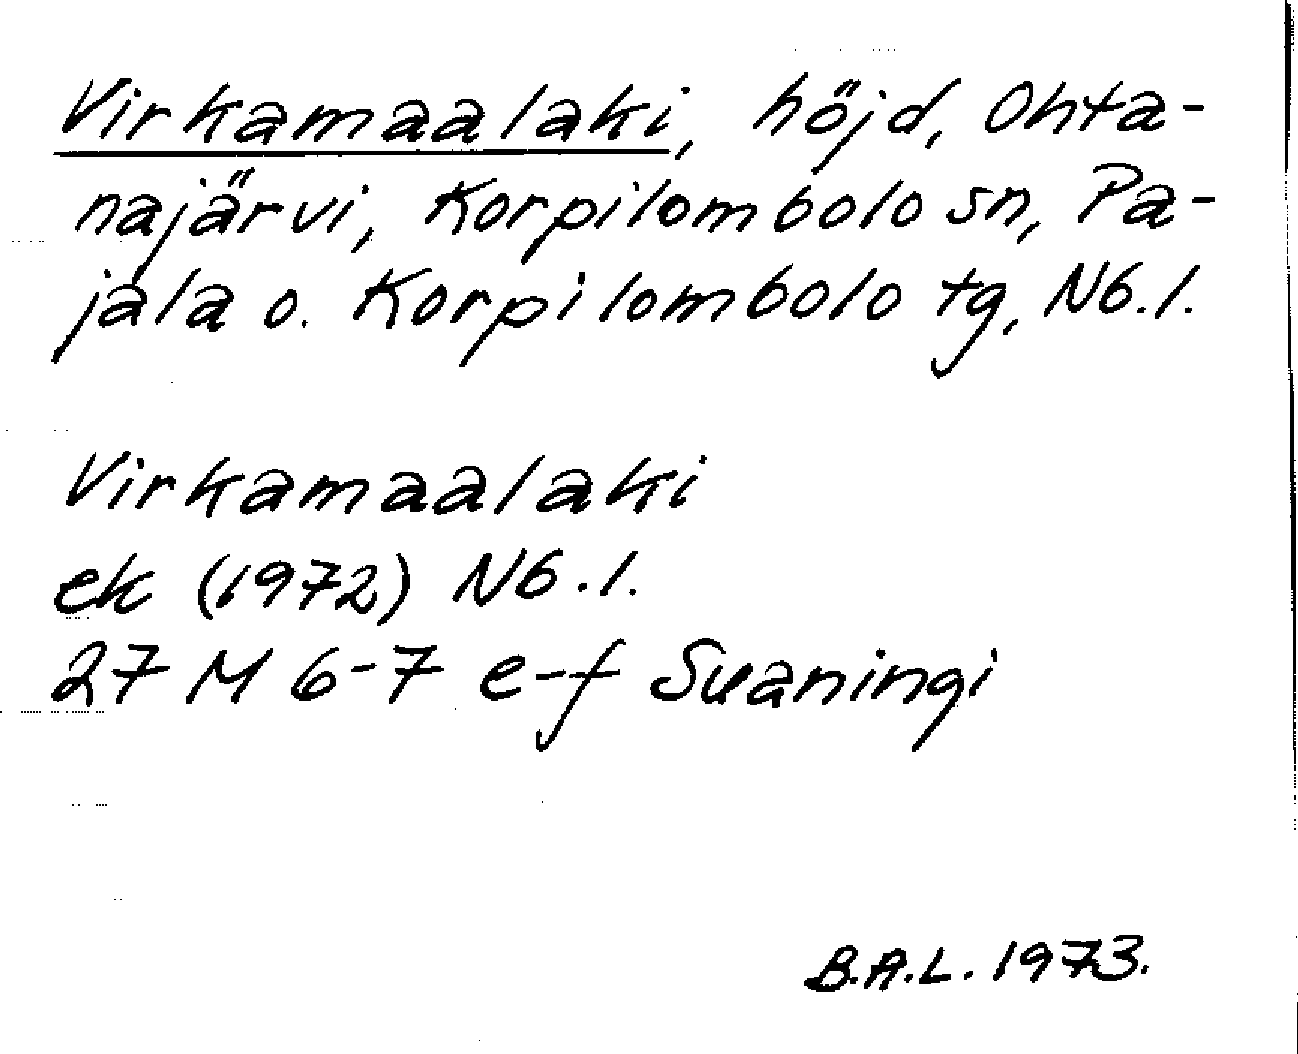 Virkamaalaki, höjd, Ohta-
najärvi, Korpilombolo sn, Pa-
jala o. Korpilombolo tg, Nb.l.
Virkamaalaki
ek (1972) Nb.l.
27 M 6-7 e-f Suaningi
B.A.L. 1973.